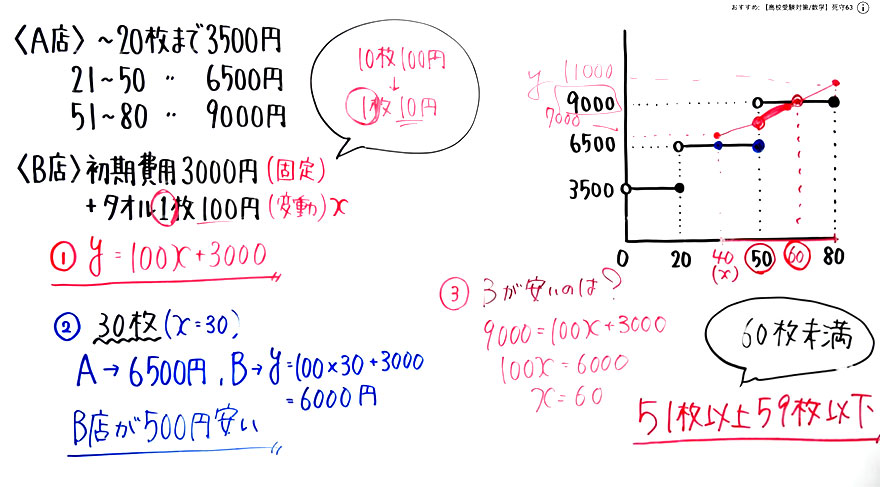 おすすめ:【高校受験対策/数学】死守63
〈A店〉~20枚まで3500円
21~50 〃 6500円
51~80 〃 9000円
10枚100円
↓
1枚10円
〈B店〉初期費用3000円(固定)
+タオル1枚100円(変動)x
① y=100x+3000
② 30枚(x=30)
A→6500円、B→y=100×30+3000
=6000円
B店が500円安い
y 11000
9000
7000
6500
3500
0 20 40 50 60 80
(x)
③ Bが安いのは?
9000=100x+3000
100x=6000
x=60
60枚未満
51枚以上59枚以下